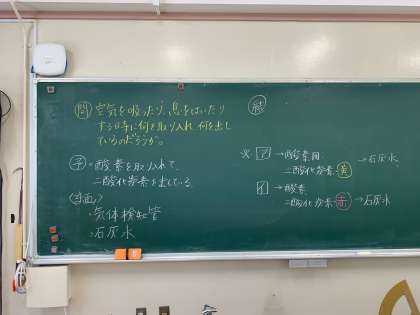 問 空気を吸ったり、息をはいたり
する時に何を取り入れ、何を出し
ているのだろうか。
予 ・酸素を取り入れて、
二酸化炭素を出している。
・気体検知管
・石灰水
結
※ ア → 酸素用
二酸化炭素 黄 → 石灰水
イ → 酸素
二酸化炭素 赤 → 石灰水